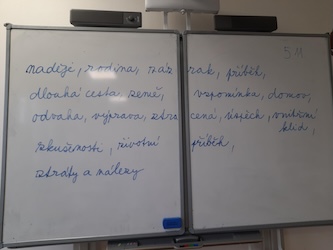 5.11
naděje, rodina, zázrak, příběh,
dlouhá cesta země, vzpomínka, domov,
odvaha, výprava, ztracená, úspěch, vnitřní
klid,
zkušenosti, životní příběh,
ztráty a nálezy